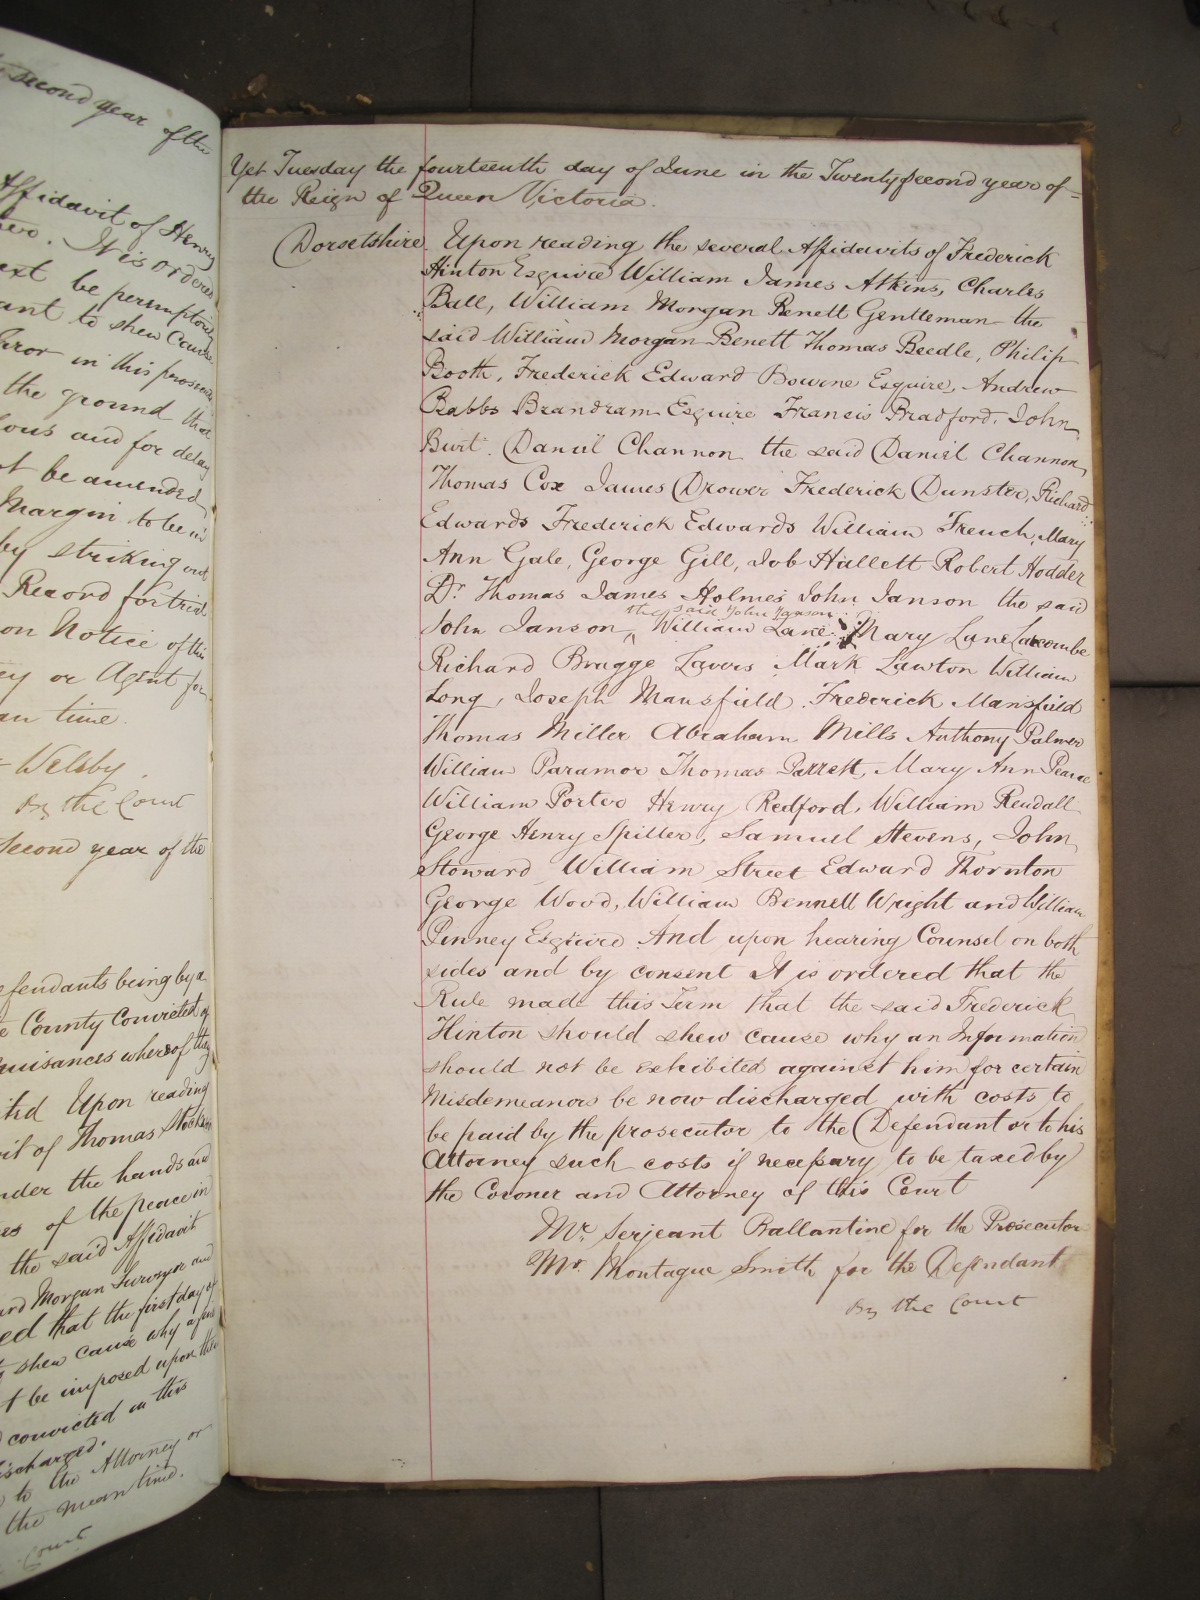 second year of the
Affidavit of Henry
It is ordered
be peremptorily
to shew Cause
Juror in this prosecu
the ground that
ious and for delay
be amended
Margin to be in
by striking out
Record for trial
on Notice of this
or Agent for
time.
Welsby.
By the Court
Second year of the
efendants being by a
County Convicted of
nuisances whereof they
Upon reading
of Thomas
nder the hands and
of the peace in
the said Affidavit
Morgan Surveyor and
ed that the first day of
shew cause why a fine
t be imposed upon the
convicted in this
ischarged.
to the Attorney or
the mean time.
Court
Yet Tuesday the fourteenth day of June in the Twenty second year of =
the Reign of Queen Victoria.
Dorsetshire. Upon reading the several Affidavits of Frederick
Hinton Esquire William James Atkins, Charles
Ball, William Morgan Benett Gentleman the
said William Morgan Benett Thomas Beedle, Philip
Booth, Frederick Edward Bowrne Esquire, Andrew
Babbs Brandram Esquire Francis Bradford. John
Burt. Daniel Channon the said Daniel Channon,
Thomas Cox James Drower Frederick Dunster, Richard
Edwards Frederick Edwards William French, Mary
Ann Gale, George Gill, Job Hallett Robert Hodder
Dr. Thomas James Holmes John Janson the said
the said John Janson
John Janson, William Lane. Mary Lane Larcombe
Richard Bragge Lavers, Mark Lawton William
Long, Joseph Mansfield. Frederick Mansfield
Thomas Miller Abraham Mills Anthony Palmer
William Paramor Thomas Parrett, Mary Ann Pearce
William Porter Henry Redford, William Rendall
George Henry Spiller, Samuel Stevens, John
Stoward William Street Edward Thornton
George Wood, William Bennell Wright and William
Penney Esquire And upon hearing Counsel on both
sides and by consent It is ordered that the
Rule made this Term that the said Frederick
Hinton should shew cause why an Information
should not be exhibited against him for certain
Misdemeanors be now discharged with costs to
be paid by the prosecutor to the Defendant or to his
Attorney such costs if necessary to be taxed by
the Coroner and Attorney of this Court
Mr. Serjeant Ballantine for the Prosecutor
Mr. Montague Smith for the Defendant
By the Court